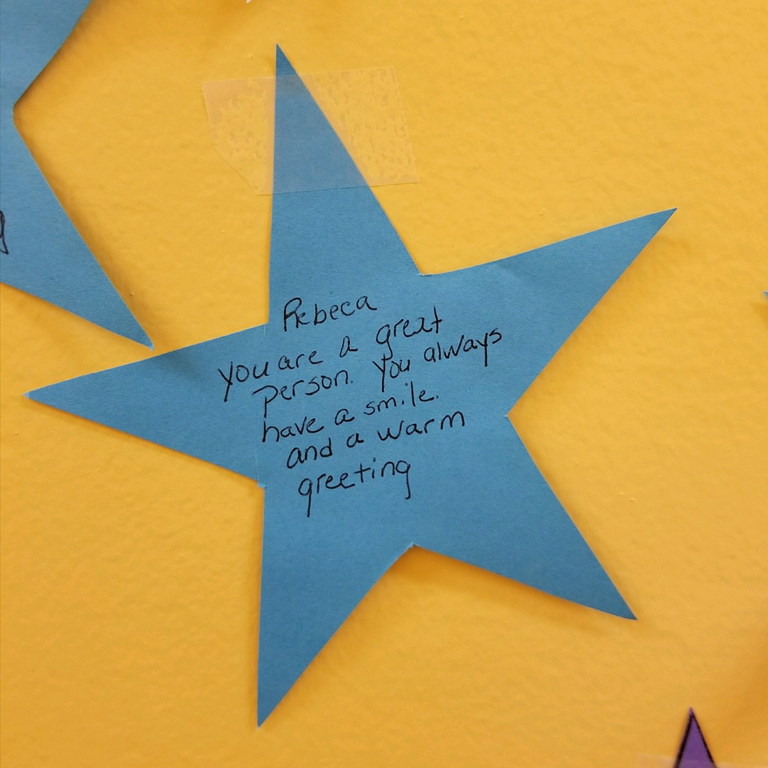 Rebeca
You are a great
person. You always
have a smile.
and a warm
greeting